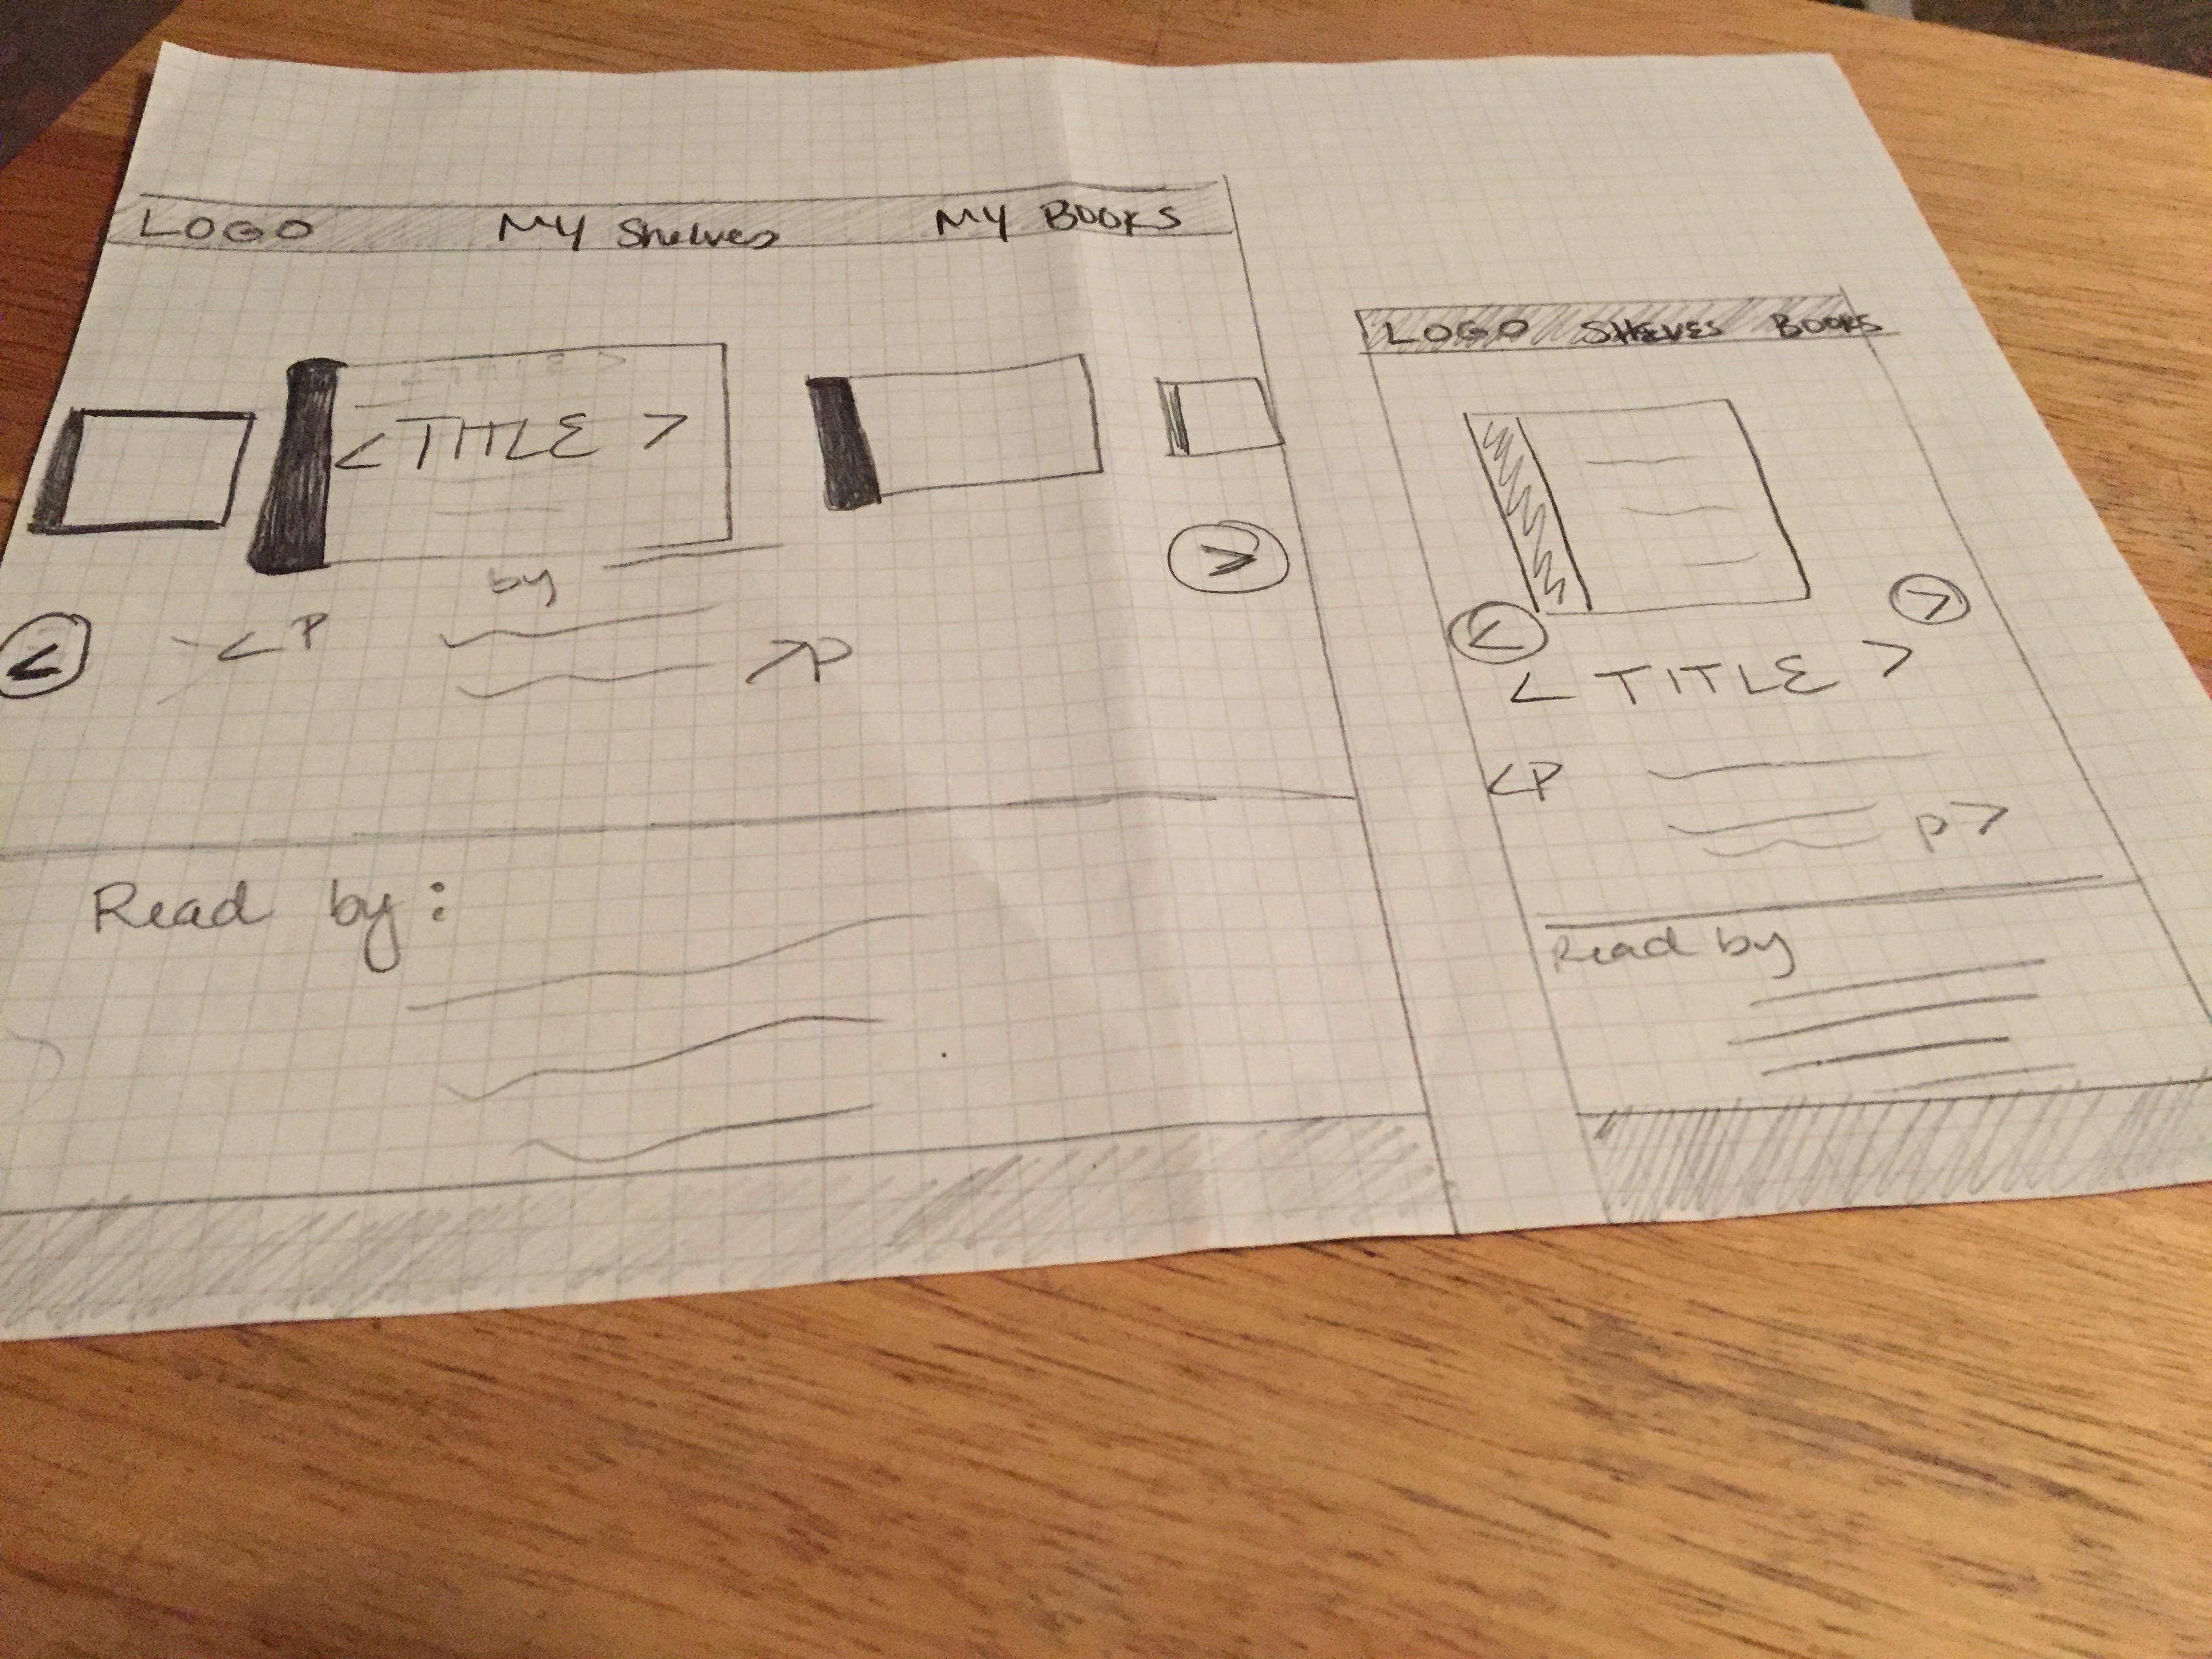 LOGO MY Shelves MY BOOKS
<TITLE>
< TITLE >
by
<
>
<P
>P
Read by:
LOGO SHELVES BOOKS
<
>
< TITLE >
<P
P>
Read by